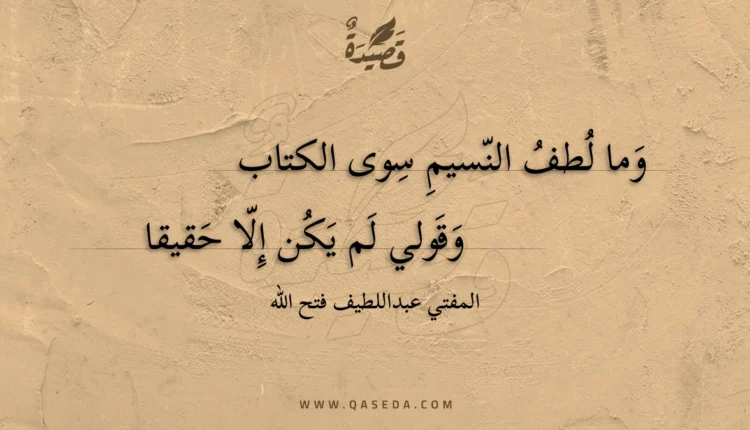 قَصِيْدَةٌ
وَما لُطفُ النّسيمِ سِوى الكتاب
وَقَولي لَم يَكُن إِلّا حَقيقا
المفتي عبداللطيف فتح الله
WWW.QASEDA.COM